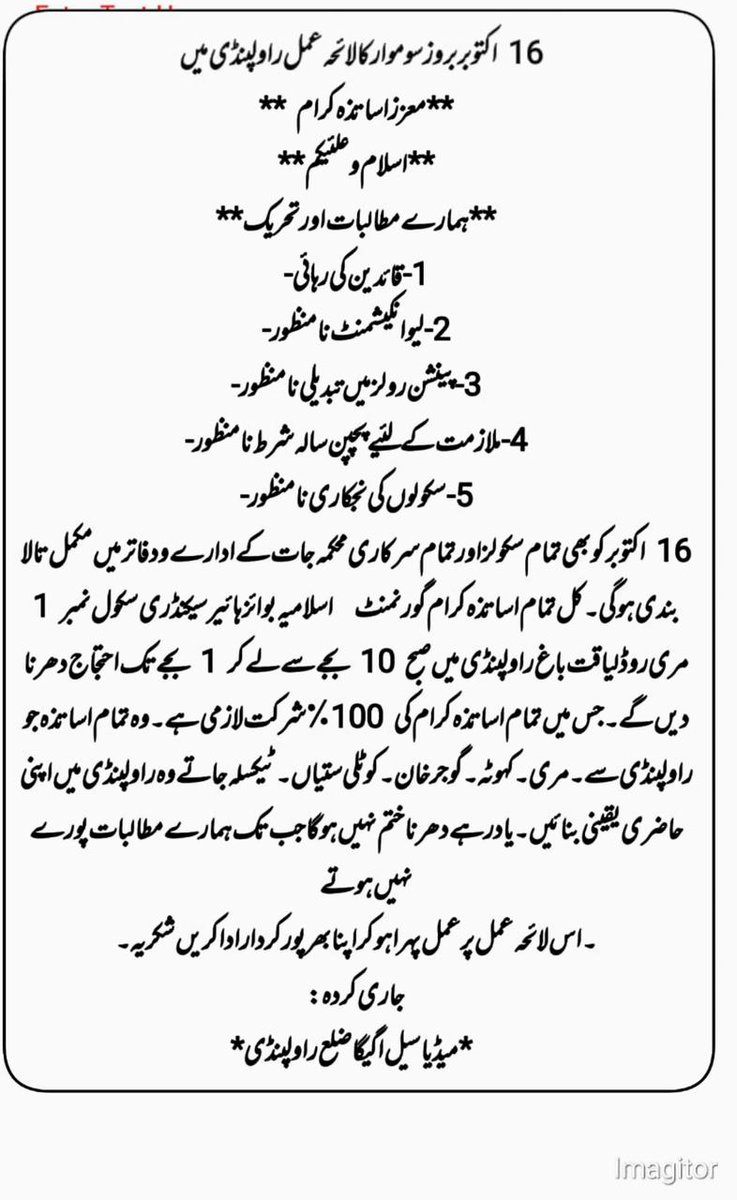 16 اکتوبر بروز سوموار کا لائحہ عمل راولپنڈی میں
**معزز اساتذہ کرام **
**اسلام و علئیکم**
**ہمارے مطالبات اور تحریک**
1-قائدین کی رہائی-
2-لیو انکیشمنٹ نامنظور-
3-پینشن رولز میں تبدیلی نامنظور-
4-ملازمت کے لئیے پچپن سالہ شرط نامنظور-
5-سکولوں کی نجکاری نامنظور-
16 اکتوبر کو بھی تمام سکولز اور تمام سرکاری محکمہ جات کے ادارے و دفاتر میں مکمل تالا
بندی ہوگی۔ کل تمام اساتذہ کرام گورنمنٹ اسلامیہ بوائز ہائیر سیکنڈری سکول نمبر 1
مری روڈ لیاقت باغ راولپنڈی میں صبح 10 بجے سے لے کر 1 بجے تک احتجاج دھرنا
دیں گے۔ جس میں تمام اساتذہ کرام کی 100% شرکت لازمی ہے۔ وہ تمام اساتذہ جو
راولپنڈی سے۔ مری۔ کہوٹہ۔ گوجرخان۔ کوٹلی ستیاں۔ ٹیکسلہ جاتے وہ راولپنڈی میں اپنی
حاضری یقینی بنائیں۔ یاد رہے دھرنا ختم نہیں ہوگا جب تک ہمارے مطالبات پورے
نہیں ہوتے
۔اس لائحہ عمل پر عمل پہرا ہو کر اپنا بھرپور کردار ادا کریں شکریہ۔
جاری کردہ:
*میڈیا سیل اگیگا ضلع راولپنڈی*
Imagitor